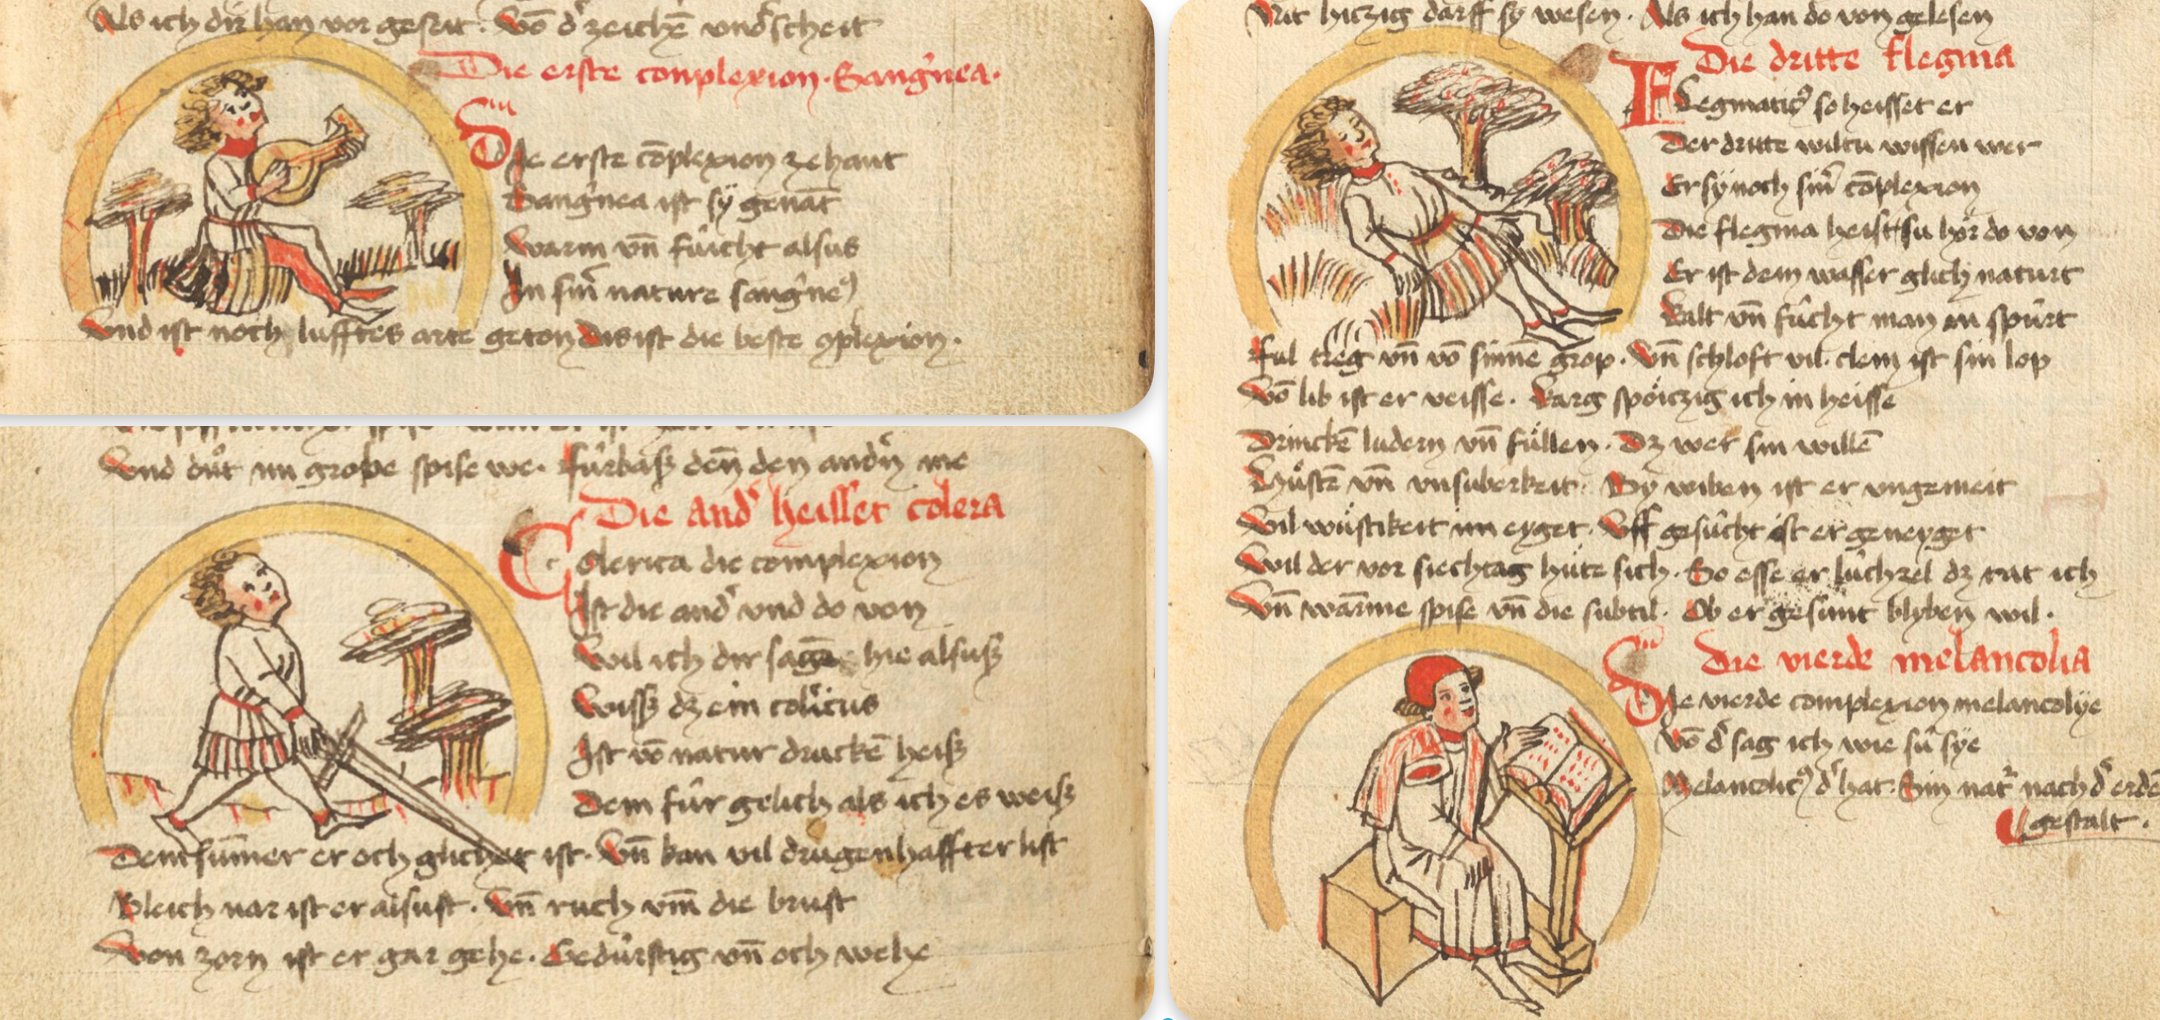 Als ich dir han vor geseit. Vō d' zeichē vnd' scheit
Die erste complexion. Sangwnea.
Die erste cōplexion ze hant
Sangwnea ist sÿ genāt
Warm vn̄ fücht alsus
In sinr̄ nature sangwne9
Vnd ist noch lufftes arte geton Dis ist die beste 9plexion.
Vnd důt im grobe spise we. Fürbaß den̄ den andn̄ me
Die and' heisset colera
Colerica die complexion
Ist die and' vnd do von
Wil ich dir sagē hie alsuß
Wiss dz ein col'icus
Ist vō natur drucken heiß
Dem für gelich als ich es weiß
Dem sum̄er er och glichet ist. Vn̄ kan vil drugenhaffter list
Bleich var ist er alsust. Vn̄ ruch vm̄ die brust
Von zorn ist er gar gehe. Gedürstig vn̄ och wehe
Nit hiczig darff sy wesen. Als ich han do von gelesen
Die dritte flegma
Flegmatic9 so heisset er
Der dritte wiltu wissen wer
Er sy noch sinr̄ cōplexion
Die flegma heist su hör do von
Er ist dem wasser glich naturt
Kalt vn̄ fücht man in spürt
Ful treg vn̄ vō sinne grop. Vn̄ schloft vil. clein ist sin lop
Vō lib ist er veisse. Karg spöiczig ich in heisse
Drinckē ludern vn̄ füllen. Dz wer sin willē
Hüstē vn̄ vnsuberkeit. By wiben ist er vngemeit
Vil wüstikeit im eyget. Vff gesücht ist er geneyget
Wil der vor siechtag hüte sich. So esse er lüczel dz rat ich
Vn̄ warme spise vn̄ die subtil. Ob er gesunt blyben wil.
Die vierde melancolia
Die vierde complexion melancolÿe
Vō d' sag ich wie sü sÿe
Melancolic9 d' hat. Sin nat' nach d' erdē
gestalt.